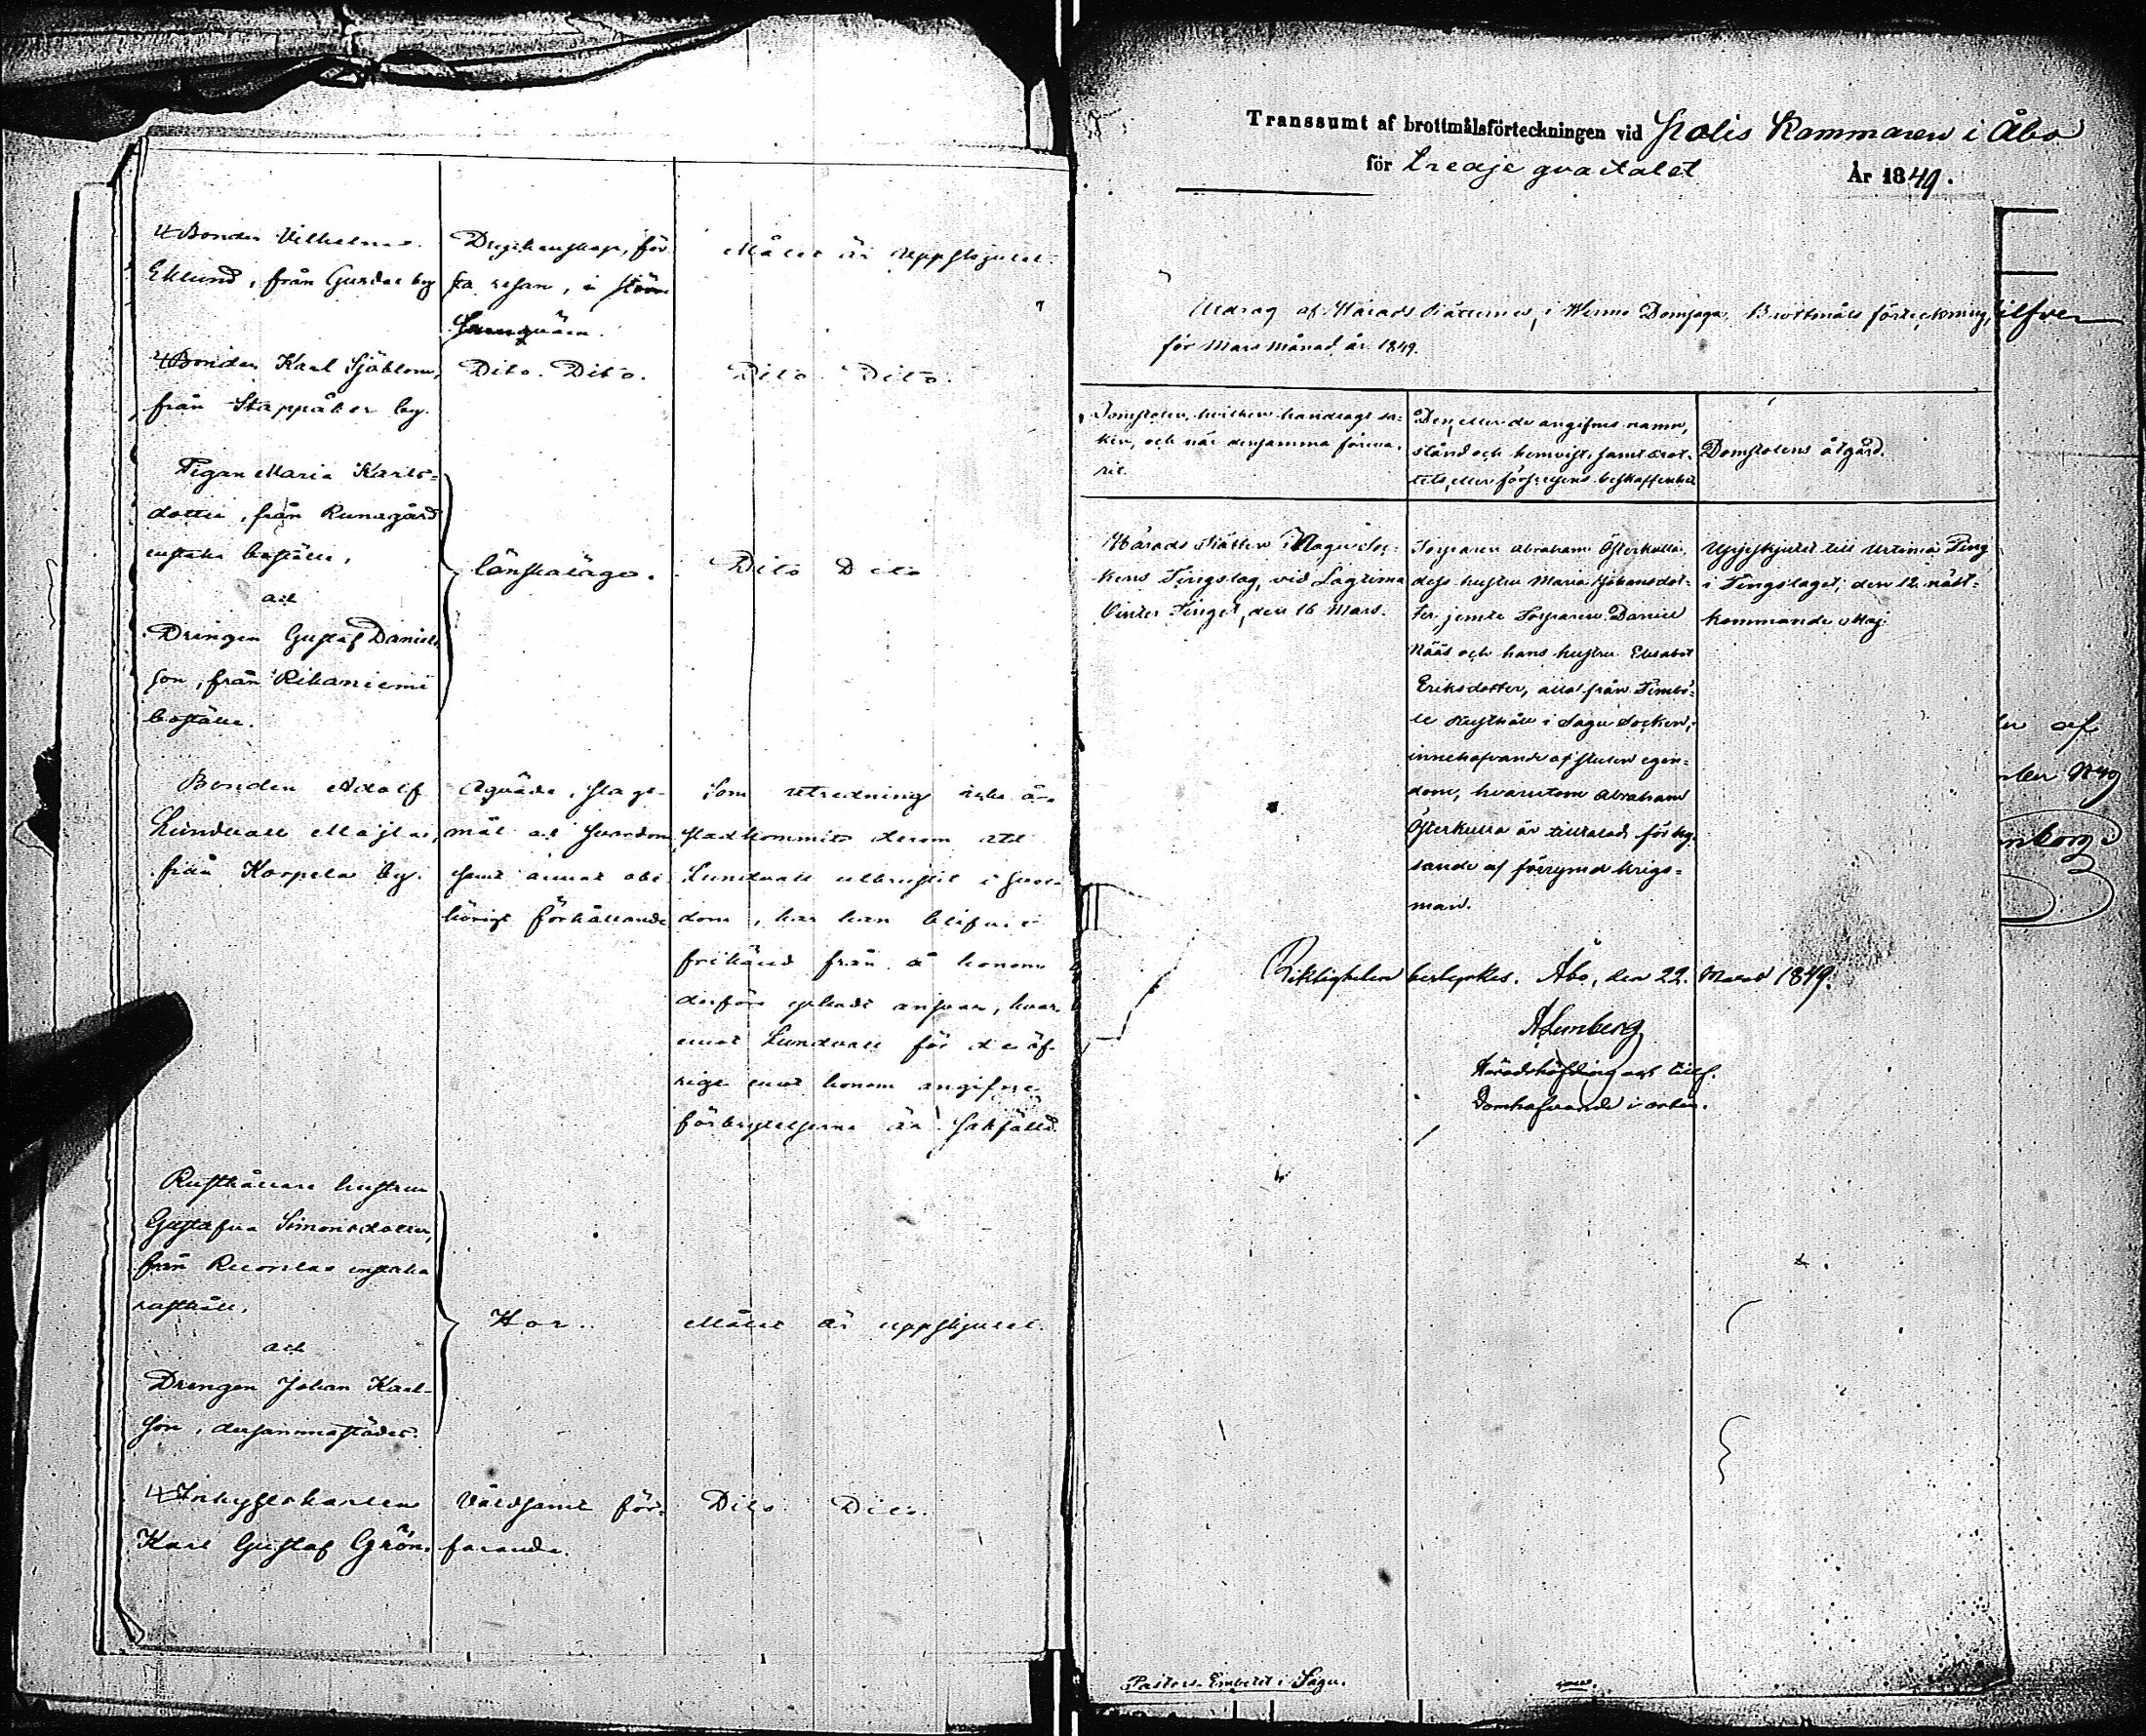 4 Bonden Vilhelm
Eklund, från Gundar by
Dryckenskap, för-
sta resan, i
Målet är uppskjutet.
4 Bonden Karl Sjöblom,
från Stappåker by.
Dito. Dito.
Dito Dito.
Pigan Maria Karls-
dotter, från Runagård
enstaka boställe,
och
Drengen Gustaf Daniels-
son, från Rikaniemi
boställe.
länskaläge.
Dito Dito
Bonden Adolf
Lundvall Maijlas,
från Korpela by.
Oqväde, slags-
mål och svordom
samt annat obe-
hörigt förhållande
Som utredning icke är
åstadkommit derom att
Lundvall utbrustit i svor-
dom, har han blifvit
frikänd från å honom
derföre yrkadt ansvar, hvar-
emot Lundvall för de öf-
riga emot honom angifne
förbrytelserna är sakfälld.
Rusthållare hustrun
Gustafva Simonsdotter,
från enstaka
rusthåll,
och
Drengen Johan Karl-
son, dersammastädes.
Hor.
Målet är uppskjutet.
4 Inhyseskarlen
Karl Gustaf Grön.
Våldsamt för-
farande.
Dito Dito.
Transsumt af brottmålsförteckningen vid Polis Kammaren i Åbo
för tredje qvartalet År 1849.
Utdrag af Härads Rätternes, i Wirmo Domsaga, Brottmåls förteckning,
för Mars månad, år 1849.
Domstolen, hvilken handlagt sa-
ken, och när densamma föreva-
rit.
Den, eller de angifnes namn,
stånd och hemvist, samt brot-
tets, eller förseelsens beskaffenhet
Domstolens åtgärd.
Härads Rätten i Sagu Soc-
kens Tingslag, vid Lagtima
Vinter Tinget, den 16 Mars.
Torparen Abraham Österkulla,
dess hustru Maria Johansdot-
ter jemte Torparen Daniel
Nääs och hans hustru Elisabet
Eriksdotter, alla från Timbö-
le Rusthåll i Sagu Socken;
innehafvande af stulen egen-
dom, hvarutom Abraham
Österkulla är tilltalad för hy-
sande af förrymd krigs-
man.
Uppskjutet till Urtima Ting
i Tingslaget, den 12 näst-
kommande Maj.
Riktigheten bestyrkes. Åbo, den 22. Mars 1849.
Häradshöfding och tillf.
Domhafvande i orten.
Pastors-Embetet i Sagu.